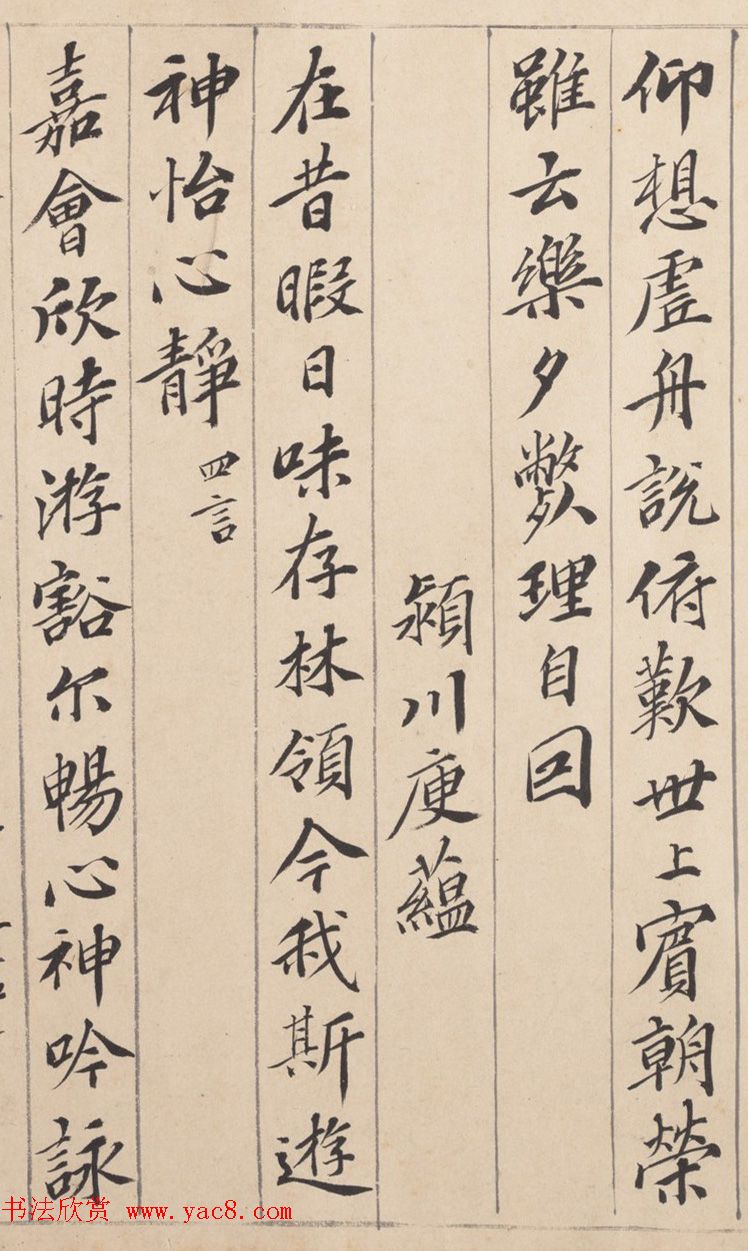 仰想虛舟說俯歎世上賓朝榮
雖云樂夕獘理自回
潁川庾蘊
在昔暇日味存林領今我斯遊
神怡心靜 四言
嘉會欣時游豁尓暢心神吟詠
书法欣赏 www.yac8.com